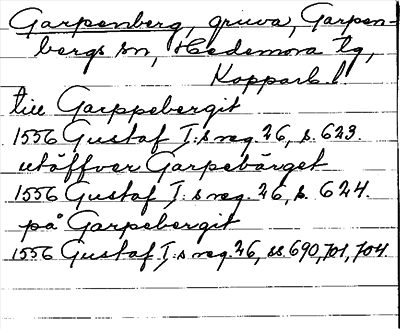 Garpenberg, gruva, Garpen-
bergs sn, Hedemora tg,
Kopparb. l.
till Garppebergit
1556 Gustaf I:s reg. 26, s. 623.
utåffver Garpebärget
1556 Gustaf I:s reg. 26, s. 624.
på Garpebergit
1556 Gustaf I:s reg. 26, ss. 690, 701, 704.